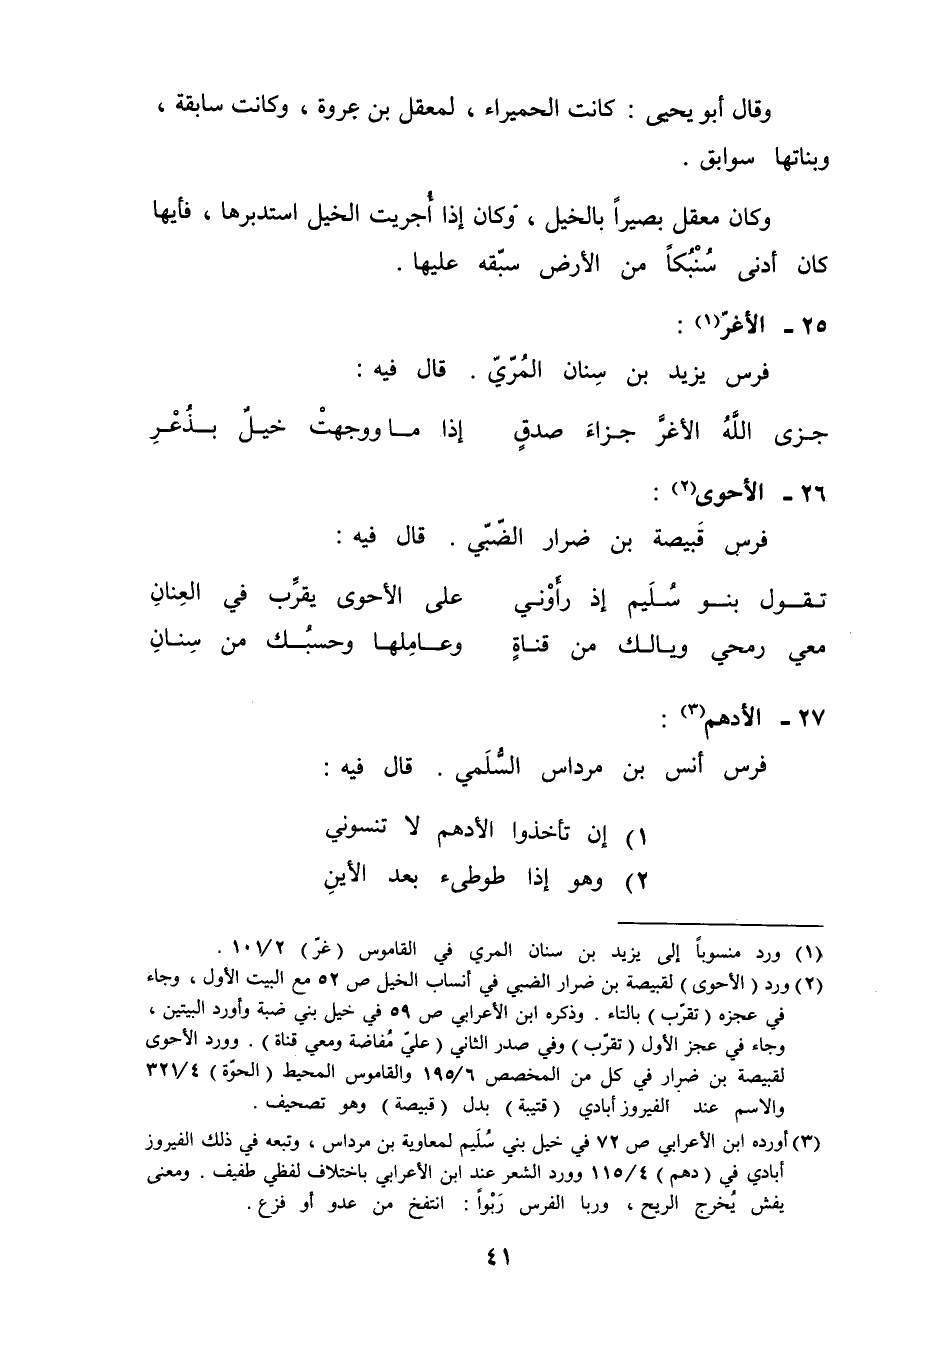 وقال أبو يحيى : كانت الحميراء ، لمعقل بن عروة ، وكانت سابقة ،
وبناتها سوابق .
وكان معقل بصيراً بالخيل ، وكان إذا أُجريت الخيل استدبرها ، فأيها
كان أدنى سُنْبُكاً من الأرض سبّقه عليها .
٢٥ - الأغرّ(١) :
فرس يزيد بن سِنان المُرّيّ . قال فيه :
جـزى اللَّهُ الأغرَّ جـزاءَ صدقٍ إذا مـا ووجهتْ خيـلٌ بـذُعْـرِ
٢٦ - الأحوى(٢) :
فرس قَبيصة بن ضرار الضّبّي . قال فيه :
تـقـول بنـو سُـلَيم إذ رأَوْنـي على الأحوى يقرِّب في العِنانِ
معي رمحي ويـالـك من قنـاةٍ وعـامِلهـا وحسبُـك من سِنـانِ
٢٧ - الأدهم(٣) :
فرس أنس بن مرداس السُّلَمي . قال فيه :
١) إن تأخذوا الأدهم لا تنسوني
٢) وهو إذا طوطىء بعد الأينِ
(١) ورد منسوباً إلى يزيد بن سنان المري في القاموس ( غرّ ) ١٠١/٢ .
(٢) ورد ( الأحوى ) لقبيصة بن ضرار الضبي في أنساب الخيل ص ٥٢ مع البيت الأول ، وجاء
في عجزه ( تقرّب ) بالتاء . وذكره ابن الأعرابي ص ٥٩ في خيل بني ضبة وأورد البيتين ،
وجاء في عجز الأول ( تقرّب ) وفي صدر الثاني ( عليّ مُفاضة ومعي قناة ) . وورد الأحوى
لقبيصة بن ضرار في كل من المخصص ١٩٥/٦ والقاموس المحيط ( الحوّة ) ٣٢١/٤
والاسم عند الفيروز أبادي ( قتيبة ) بدل ( قبيصة ) وهو تصحيف .
(٣) أورده ابن الأعرابي ص ٧٢ في خيل بني سُلَيم لمعاوية بن مرداس ، وتبعه في ذلك الفيروز
أبادي في ( دهم ) ١١٥/٤ وورد الشعر عند ابن الأعرابي باختلاف لفظي طفيف . ومعنى
يفش يُخرج الريح ، وربا الفرس رَبْواً : انتفخ من عدو أو فزع .
٤١